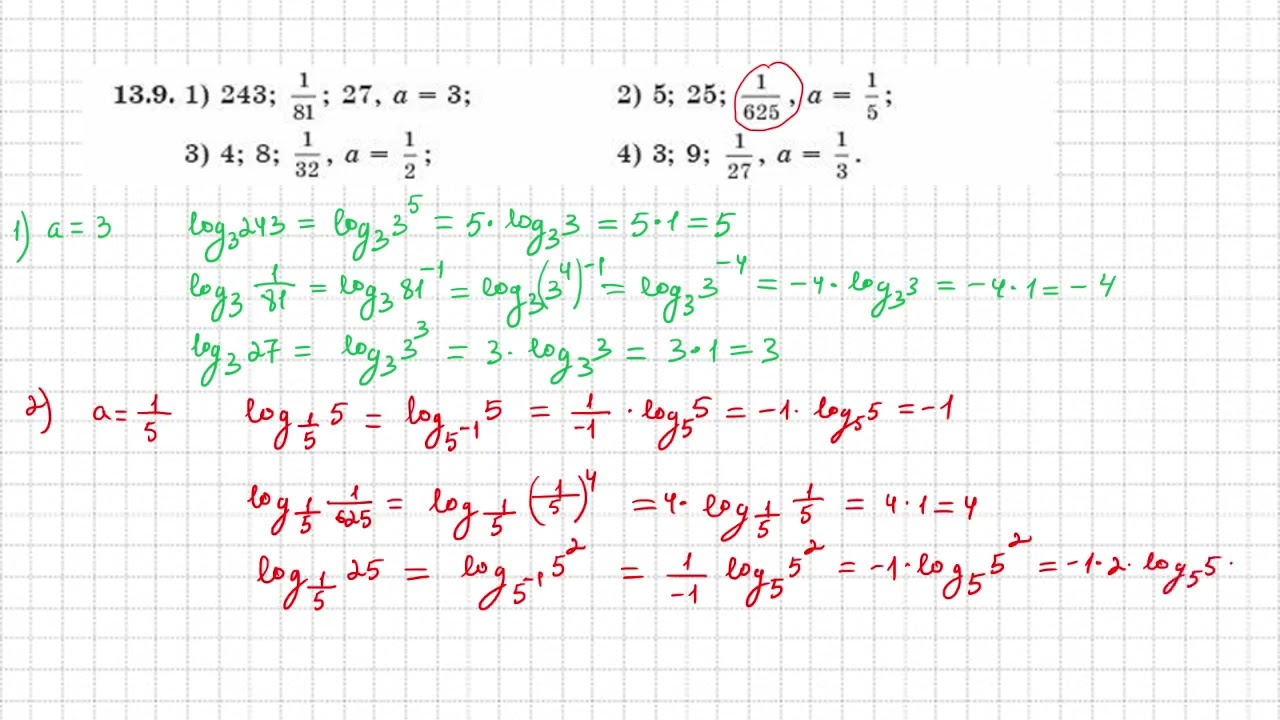 13.9. 1) 243; 1/81; 27, a = 3; 2) 5; 25; 1/625, a = 1/5;
3) 4; 8; 1/32, a = 1/2; 4) 3; 9; 1/27, a = 1/3.
1) a = 3 log₃243 = log₃3⁵ = 5·log₃3 = 5·1 = 5
log₃ 1/81 = log₃81⁻¹ = log₃(3⁴)⁻¹ = log₃3⁻⁴ = −4·log₃3 = −4·1 = −4
log₃27 = log₃3³ = 3·log₃3 = 3·1 = 3
2) a = 1/5 log_(1/5) 5 = log_(5⁻¹) 5 = 1/−1 · log₅5 = −1·log₅5 = −1
log_(1/5) 1/625 = log_(1/5) (1/5)⁴ = 4·log_(1/5) 1/5 = 4·1 = 4
log_(1/5) 25 = log_(5⁻¹) 5² = 1/−1 log₅5² = −1·log₅5² = −1·2·log₅5·